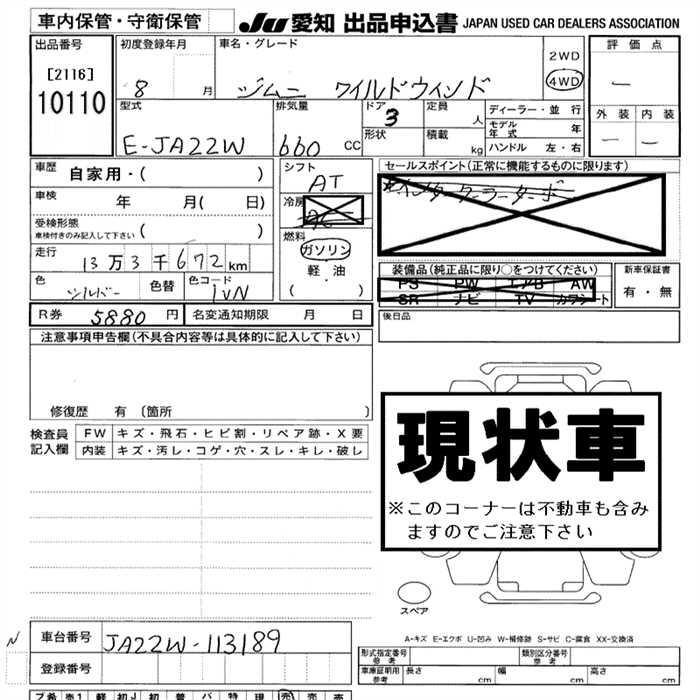 車内保管・守衛保管 JU 愛知 出品申込書 JAPAN USED CAR DEALERS ASSOCIATION
出品番号 初度登録年月 車名・グレード 評価点
[2116] 8 月 ジムニー ワイルドウィンド 2WD
10110 4WD
型式 排気量 ドア 定員 ディーラー・並行 外装 内装
E-JA22W 660 CC 3 人 モデル年式 年
形状 積載 kg ハンドル 左・右
車歴 自家用・( ) シフト AT セールスポイント(正常に機能するものに限ります)
車検 年 月( 日) 冷房 AC インタークーラーターボ
受検形態 ( )
車検付きのみ記入して下さい 燃料
走行 13万3千672km ガソリン 装備品(純正品に限り○をつけてください) 新車保証書
軽油 PS PW エアB AW 有・無
色 シルバー 色替 色コード 1VN ・( ) SR ナビ TV カワシート
R券 5880 円 名変通知期限 月 日 後日品
注意事項申告欄(不具合内容等は具体的に記入して下さい)
修復歴 有 〔箇所 〕
検査員 FW キズ・飛石・ヒビ割・リペア跡・X要
記入欄 内装 キズ・汚レ・コゲ・穴・スレ・キレ・破レ
現状車
※このコーナーは不動車も含み
ますのでご注意下さい
スペア
A-キズ E-エクボ U-凹み W-補修跡 S-サビ C-腐食 XX-交換済
N 車台番号 JA22W-113189
登録番号
形式指定番号 参考 類別区分番号 参考
車庫証明用 参考 長さ cm 幅 cm 高さ cm